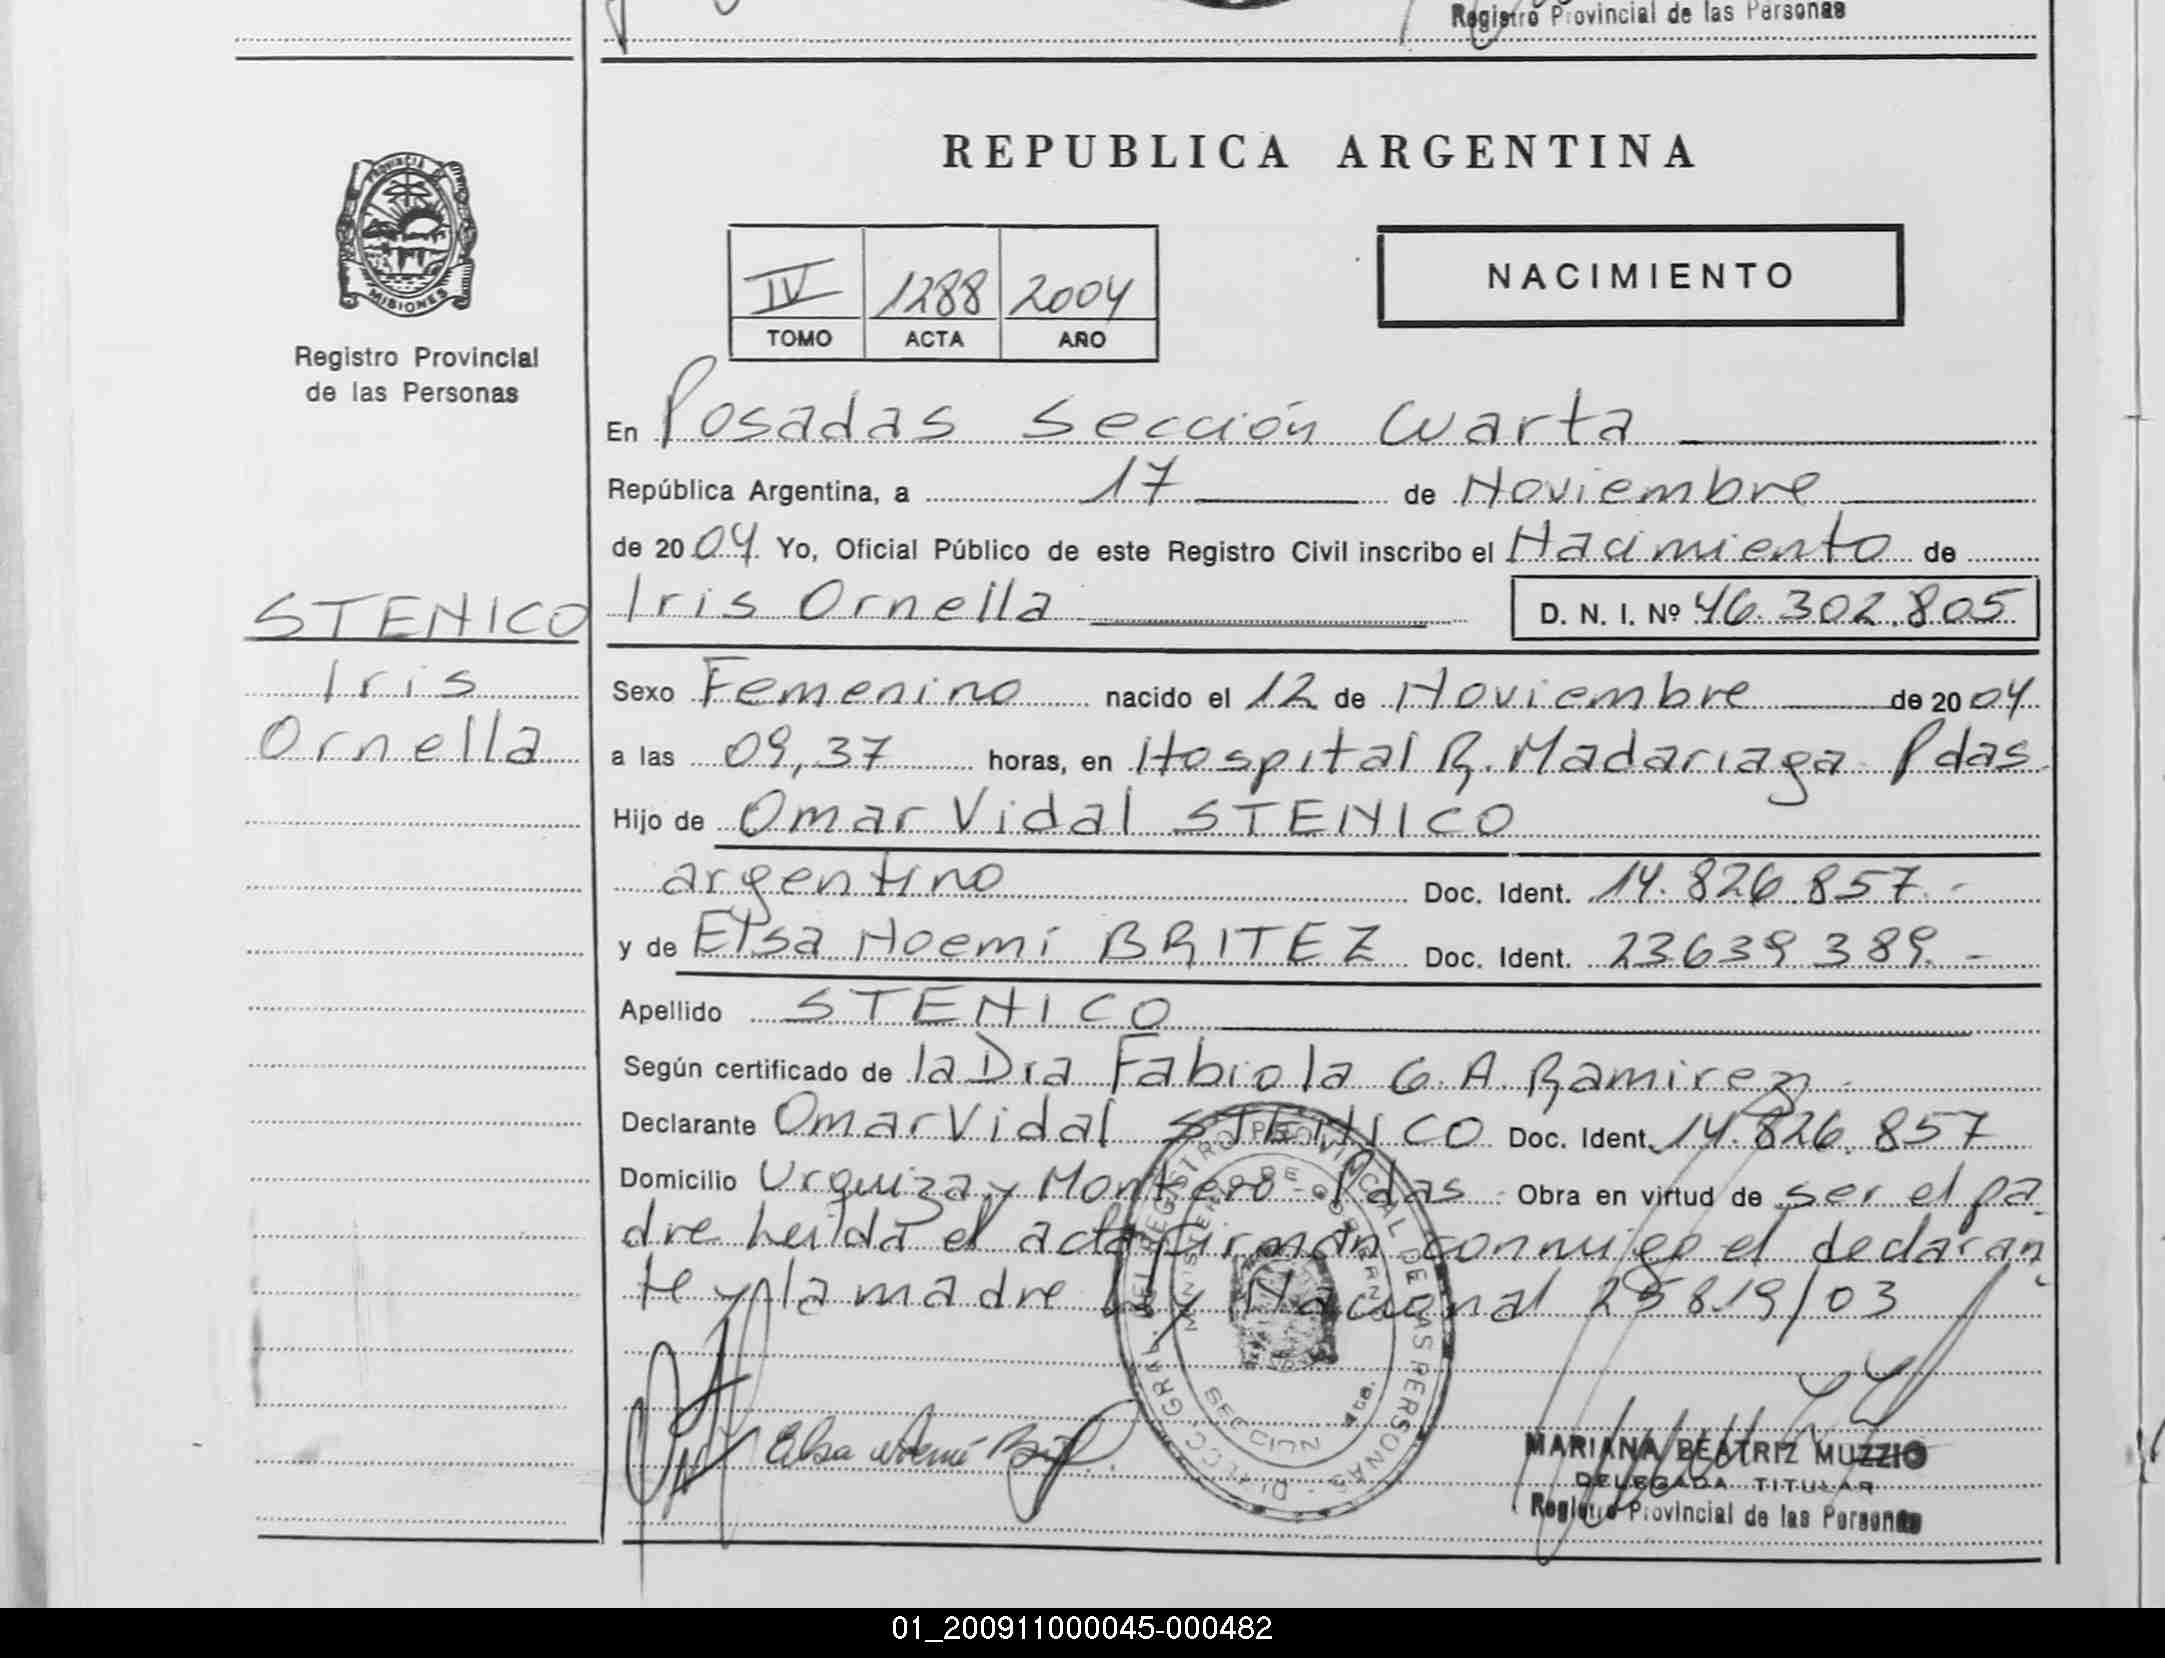 Registro Provincial de las Personas
PROVINCIA DE
MISIONES
Registro Provincial
de las Personas
STENICO
Iris
Ornella
REPUBLICA ARGENTINA
IV 1288 2004
TOMO ACTA AÑO
NACIMIENTO
En Posadas Sección Cuarta
República Argentina, a 17 de Noviembre
de 2004 Yo, Oficial Público de este Registro Civil inscribo el Nacimiento de
Iris Ornella D. N. I. Nº 46.302.805
Sexo Femenino nacido el 12 de Noviembre de 2004
a las 09,37 horas, en Hospital R. Madariaga Pdas.
Hijo de Omar Vidal STENICO
argentino Doc. Ident. 14.826.857.-
y de Elsa Noemi BRITEZ Doc. Ident. 23639389.-
Apellido STENICO
Según certificado de la Dra Fabiola G. A. Ramirez
Declarante Omar Vidal STENICO Doc. Ident. 14.826.857
Domicilio Urquiza y Montero - Pdas. Obra en virtud de ser el pa
dre leída el acta firman conmigo el declaran
te y la madre Ley Nacional 25819/03
Elsa Noemi
DIRECC. GRAL. DEL REGISTRO PROVINCIAL DE LAS PERSONAS
MINISTERIO DE GOBIERNO
SECCION 4ta.
MARIANA BEATRIZ MUZZIO
DELEGADA TITULAR
Registro Provincial de las Personas
01_200911000045-000482